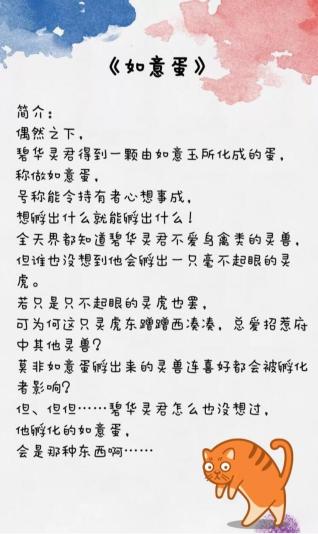 《如意蛋》
简介：
偶然之下，
碧华灵君得到一颗由如意玉所化成的蛋，
称做如意蛋，
号称能令持有者心想事成，
想孵出什么就能孵出什么！
全天界都知道碧华灵君不爱鸟禽类的灵兽，
但谁也没想到他会孵出一只毫不起眼的灵
虎。
若只是只不起眼的灵虎也罢，
可为何这只灵虎东蹭蹭西凑凑，总爱招惹府
中其他灵兽？
莫非如意蛋孵出来的灵兽连喜好都会被孵化
者影响？
但、但但……碧华灵君怎么也没想过，
他孵化的如意蛋，
会是那种东西啊……